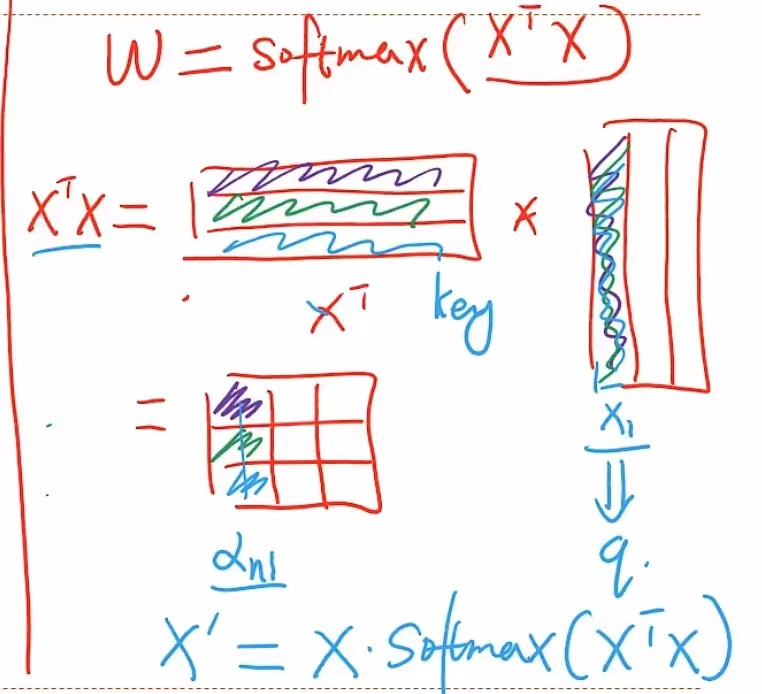 W = softmax(XᵀX)
XᵀX = ×
Xᵀ key
=
x₁
αₙ₁
q.
X' = X·Softmax(XᵀX)